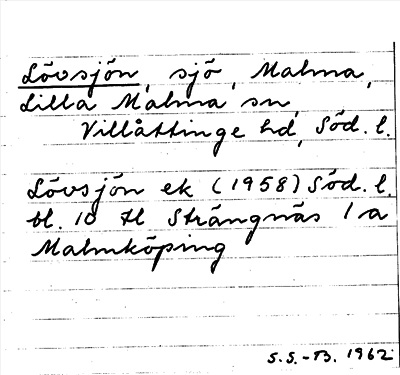 Lövsjön, sjö, Malma,
Lilla Malma sn,
Villåttinge hd, Söd. l.
Lövsjön ek (1958) Söd. l.
bl. 10 tl Strängnäs l a
Malmköping
S.S.-B. 1962